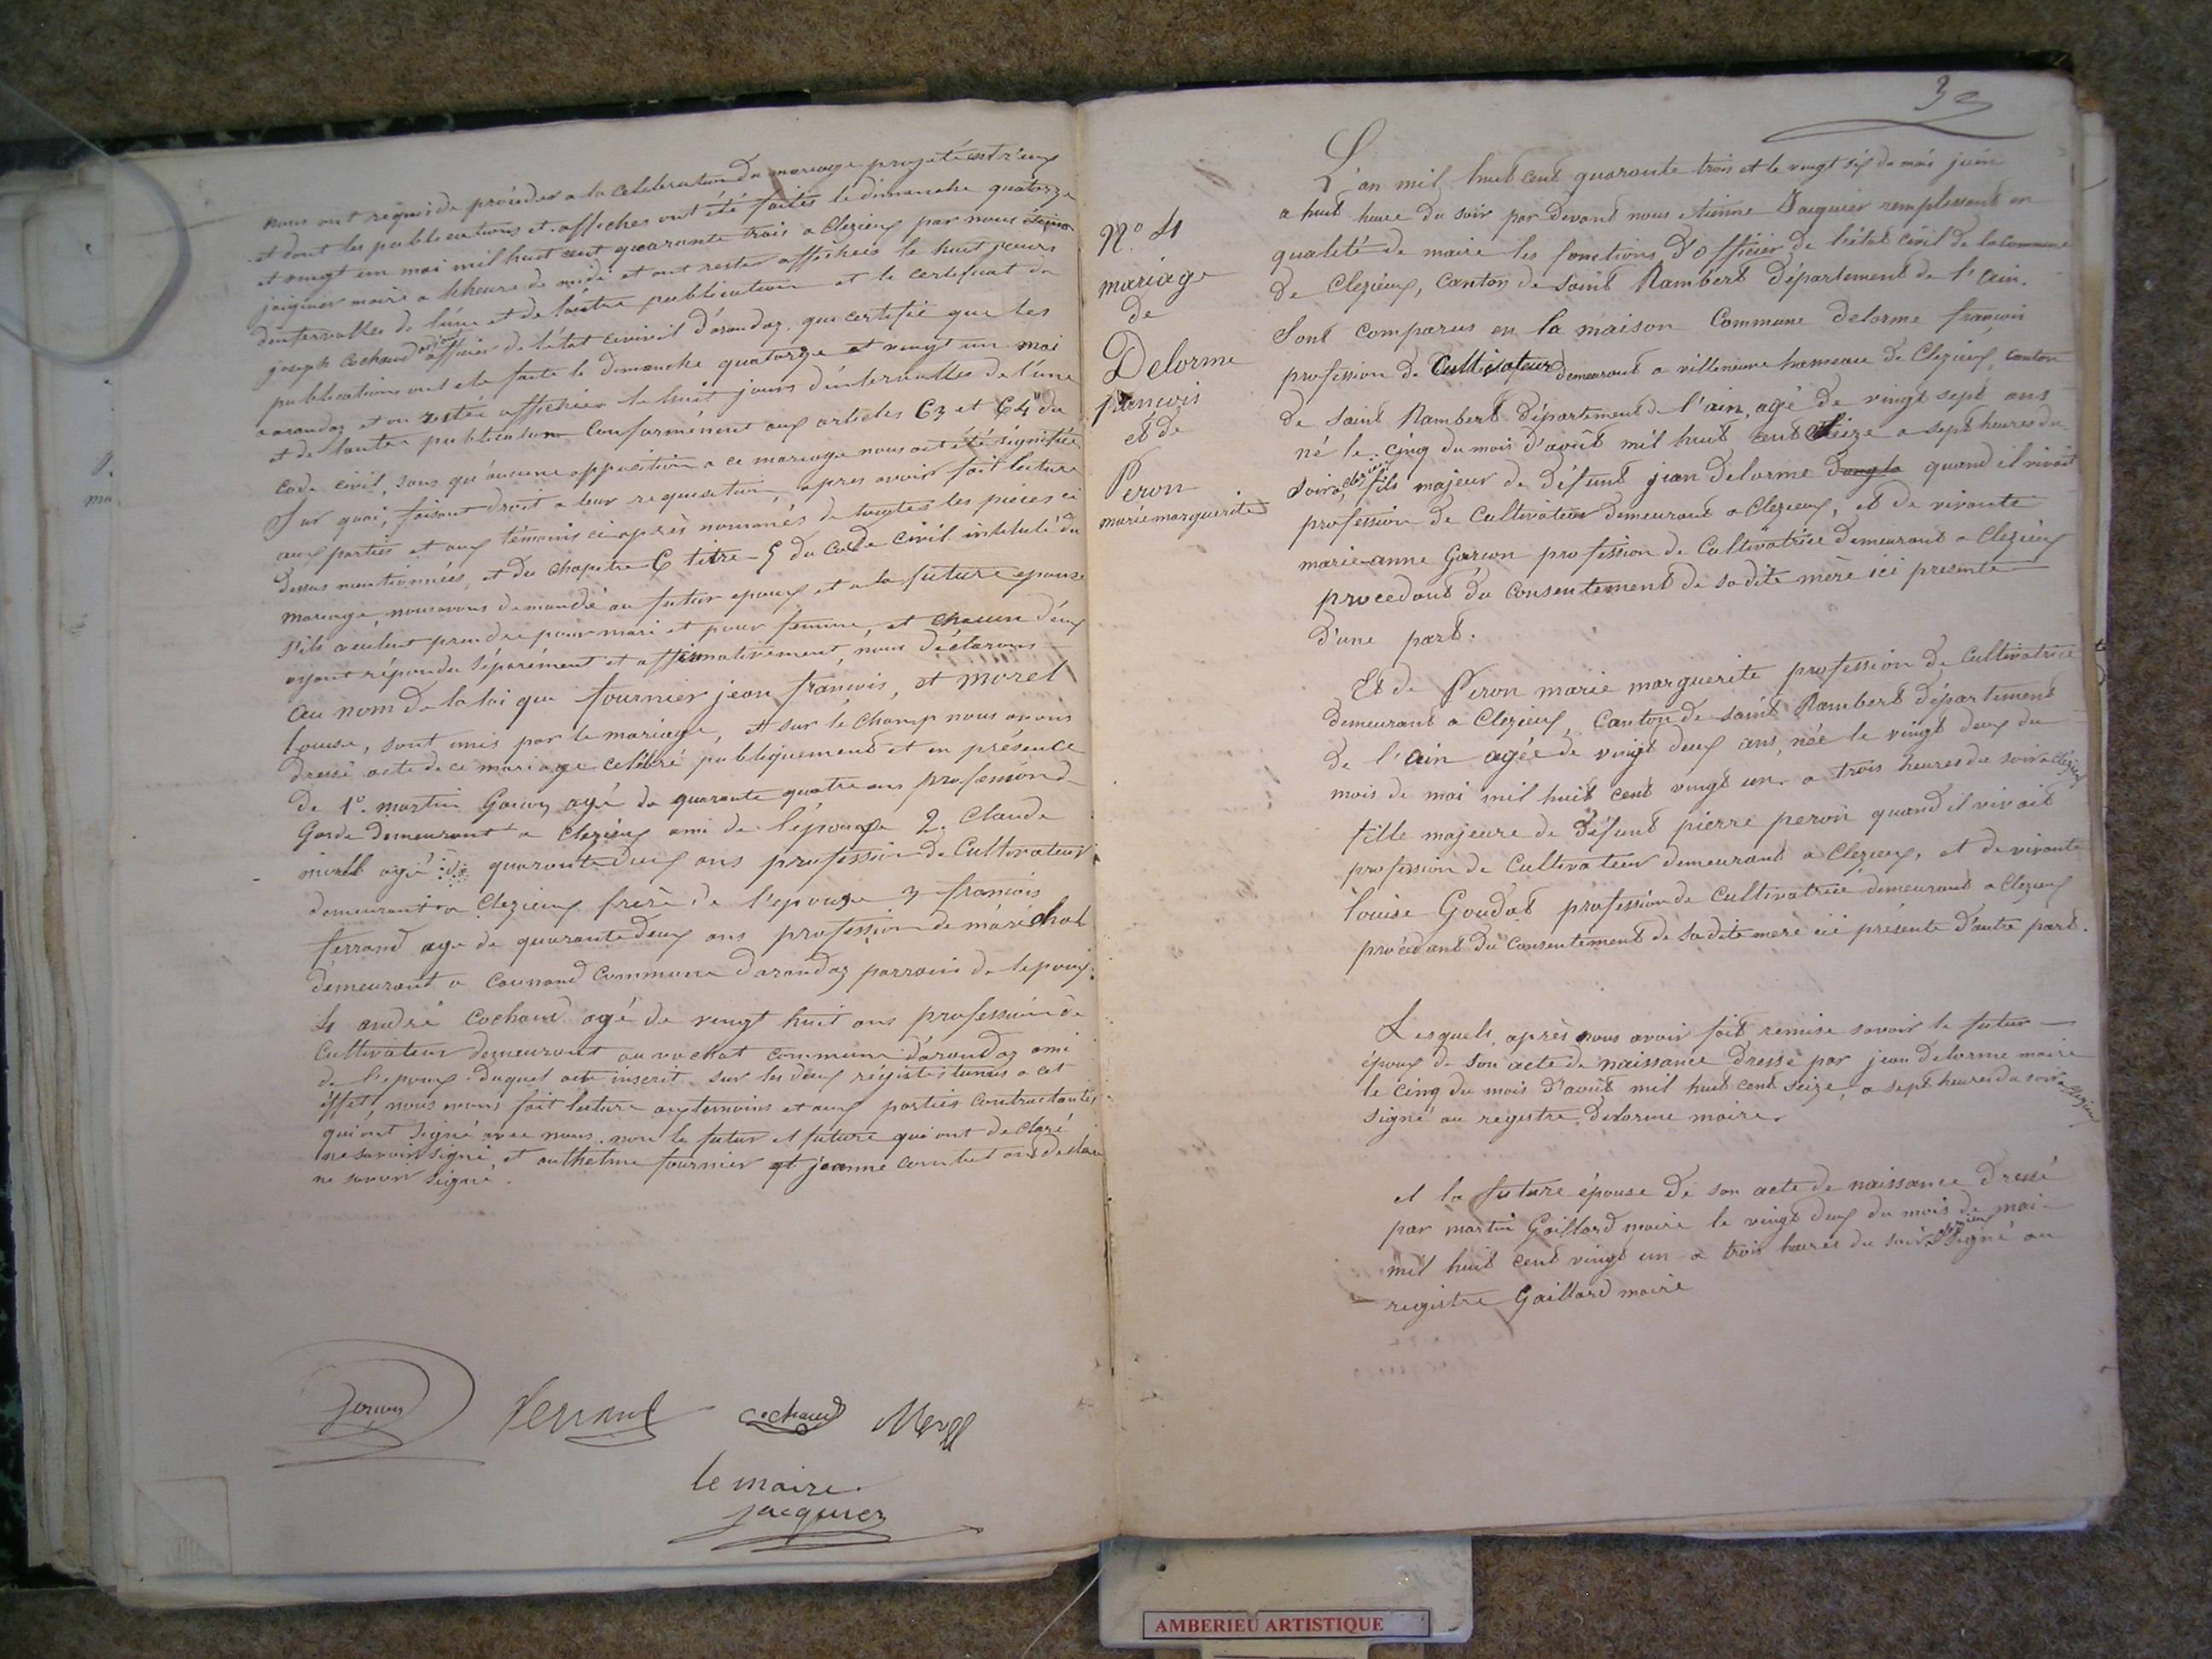 nous ont requis de procéder a la celebration du mariage projeté entr'eux
et dont les publications et affiches ont été faites le dimanche quatorze
et vingt un mai mil huit cent quarante trois a Clezieux par nous étienne
jaiquier maire a l'heure de midi et ont rester affichées le huit jours
d'intervalles de l'une et de l'autre publication et le certificat de
joseph Cochaud officier de l'état civivil d'arandaz, qui certifie que les
publications ont ete faite le dimanche quatorze et vingt un mai
a arandaz et on restée affichées le huit jours d'intervalles de l'une
et de l'autre publication Conformément aux articles 63 et 64 du
code civil, sans qu'aucune opposition a ce mariage nous ait été signifiée
Sur quoi, faisant droit a leur requisition, apres avoir fait lecture
aux parties et aux témoins ci après nommés de toutes les pièces ci
dessus mentionnées, et du chapitre 6 titre 5 du code civil intitulé du
mariage, nous avons demandé au futur epoux et a la future epouse
s'ils veulent prendre pour mari et pour femme, et chacun d'eux
ayant répondu séparément et affirmativement, nous déclarons
au nom de la loi que fournier jean françois, et morel
louise, sont unis par le mariage, et sur le champ nous avons
dressé acte de ce mariage celébré publiquement et en présence
de 1o. martin agé de quarante quatre ans profession de
Garde demeurant a Clezieux ami de l'épouse 2. Claude
morel agé de quarante deux ans profession de Cultivateur
demeurant a Clezieux frère de l'epouse 3 françois
ferrand age de quarante deux ans profession de maréchal
demeurant a commune darandaz parrain de lepoux
4 andré Cochaud agé de vingt huit ans profession de
Cultivateur demeurant au vachat commune d'arandaz ami
de l'epoux. Duquel acte inscrit sur les deux régistes tenus a cet
éffett, nous avons fait lecture aux temoins et aux parties contractantes
qui ont signé avec nous non le futur et future qui ont declaré
ne savoir signé, et anthelme fournier et jeanne ont déclaré
ne savoir signé.
ferrand cochaud Morel
le maire.
jacquier
3
L'an mil huit cent quarante trois et le vingt six du mois juin
a huit heure du soir par devant nous etienne Jacquier remplissant en
qualité de maire les fonctions d'officier de l'état civil de la commune
de Clezieux, canton de saint Rambert département de l'ain.
Sont comparus en la maison Commune Delorme françois
profession de Cultivateur demeurant a villeneuve hameau de Clezieux, canton
de saint Rambert département de l'ain, agé de vingt sept ans
né le cinq du mois d'août mil huit cent seize a sept heures du
soir a clezieux fils majeur de défunt jean Delorme quand il vivait
profession de Cultivateur demeurant a Clezieux, et de vivante
marie anne Garson profession de Cultivatrice demeurant a Clezieux
procedant du consentement de sa dite mère ici presente
d'une part.
Et de Peron marie marguerite profession de Cultivatrice
demeurant a Clezieux Canton de saint Rambert département
de l'ain agée de vingt deux ans, née le vingt deux du
mois de mai mil huit cent vingt un. a trois heures du soir a Clezieux
fille majeure de défunt pierre peron quand il vivait
profession de Cultivateur demeurant a Clezieux, et de vivante
louise Goudot proféssion de Cultivatrice demeurant a Clezieux
procedant du consentement de sa dite mere ici présente d'autre part.
Lesquels, après nous avoir fait remise savoir le futur
époux de son acte de naissance dressé par jean delorme maire
le cinq du mois d'août mil huit cent seize, a sept heures du soir a Clezieux
signé au registre Delorme maire.
et la future épouse de son acte de naissance dressé
par martin Gaillard maire le vingt deux du mois de mai
mil huit cent vingt un a trois heures du soir a Clezieux signé au
registre Gaillard maire
No 4
mariage
de
Delorme
francois
et de
Peron
marie marguerite
AMBERIEU ARTISTIQUE